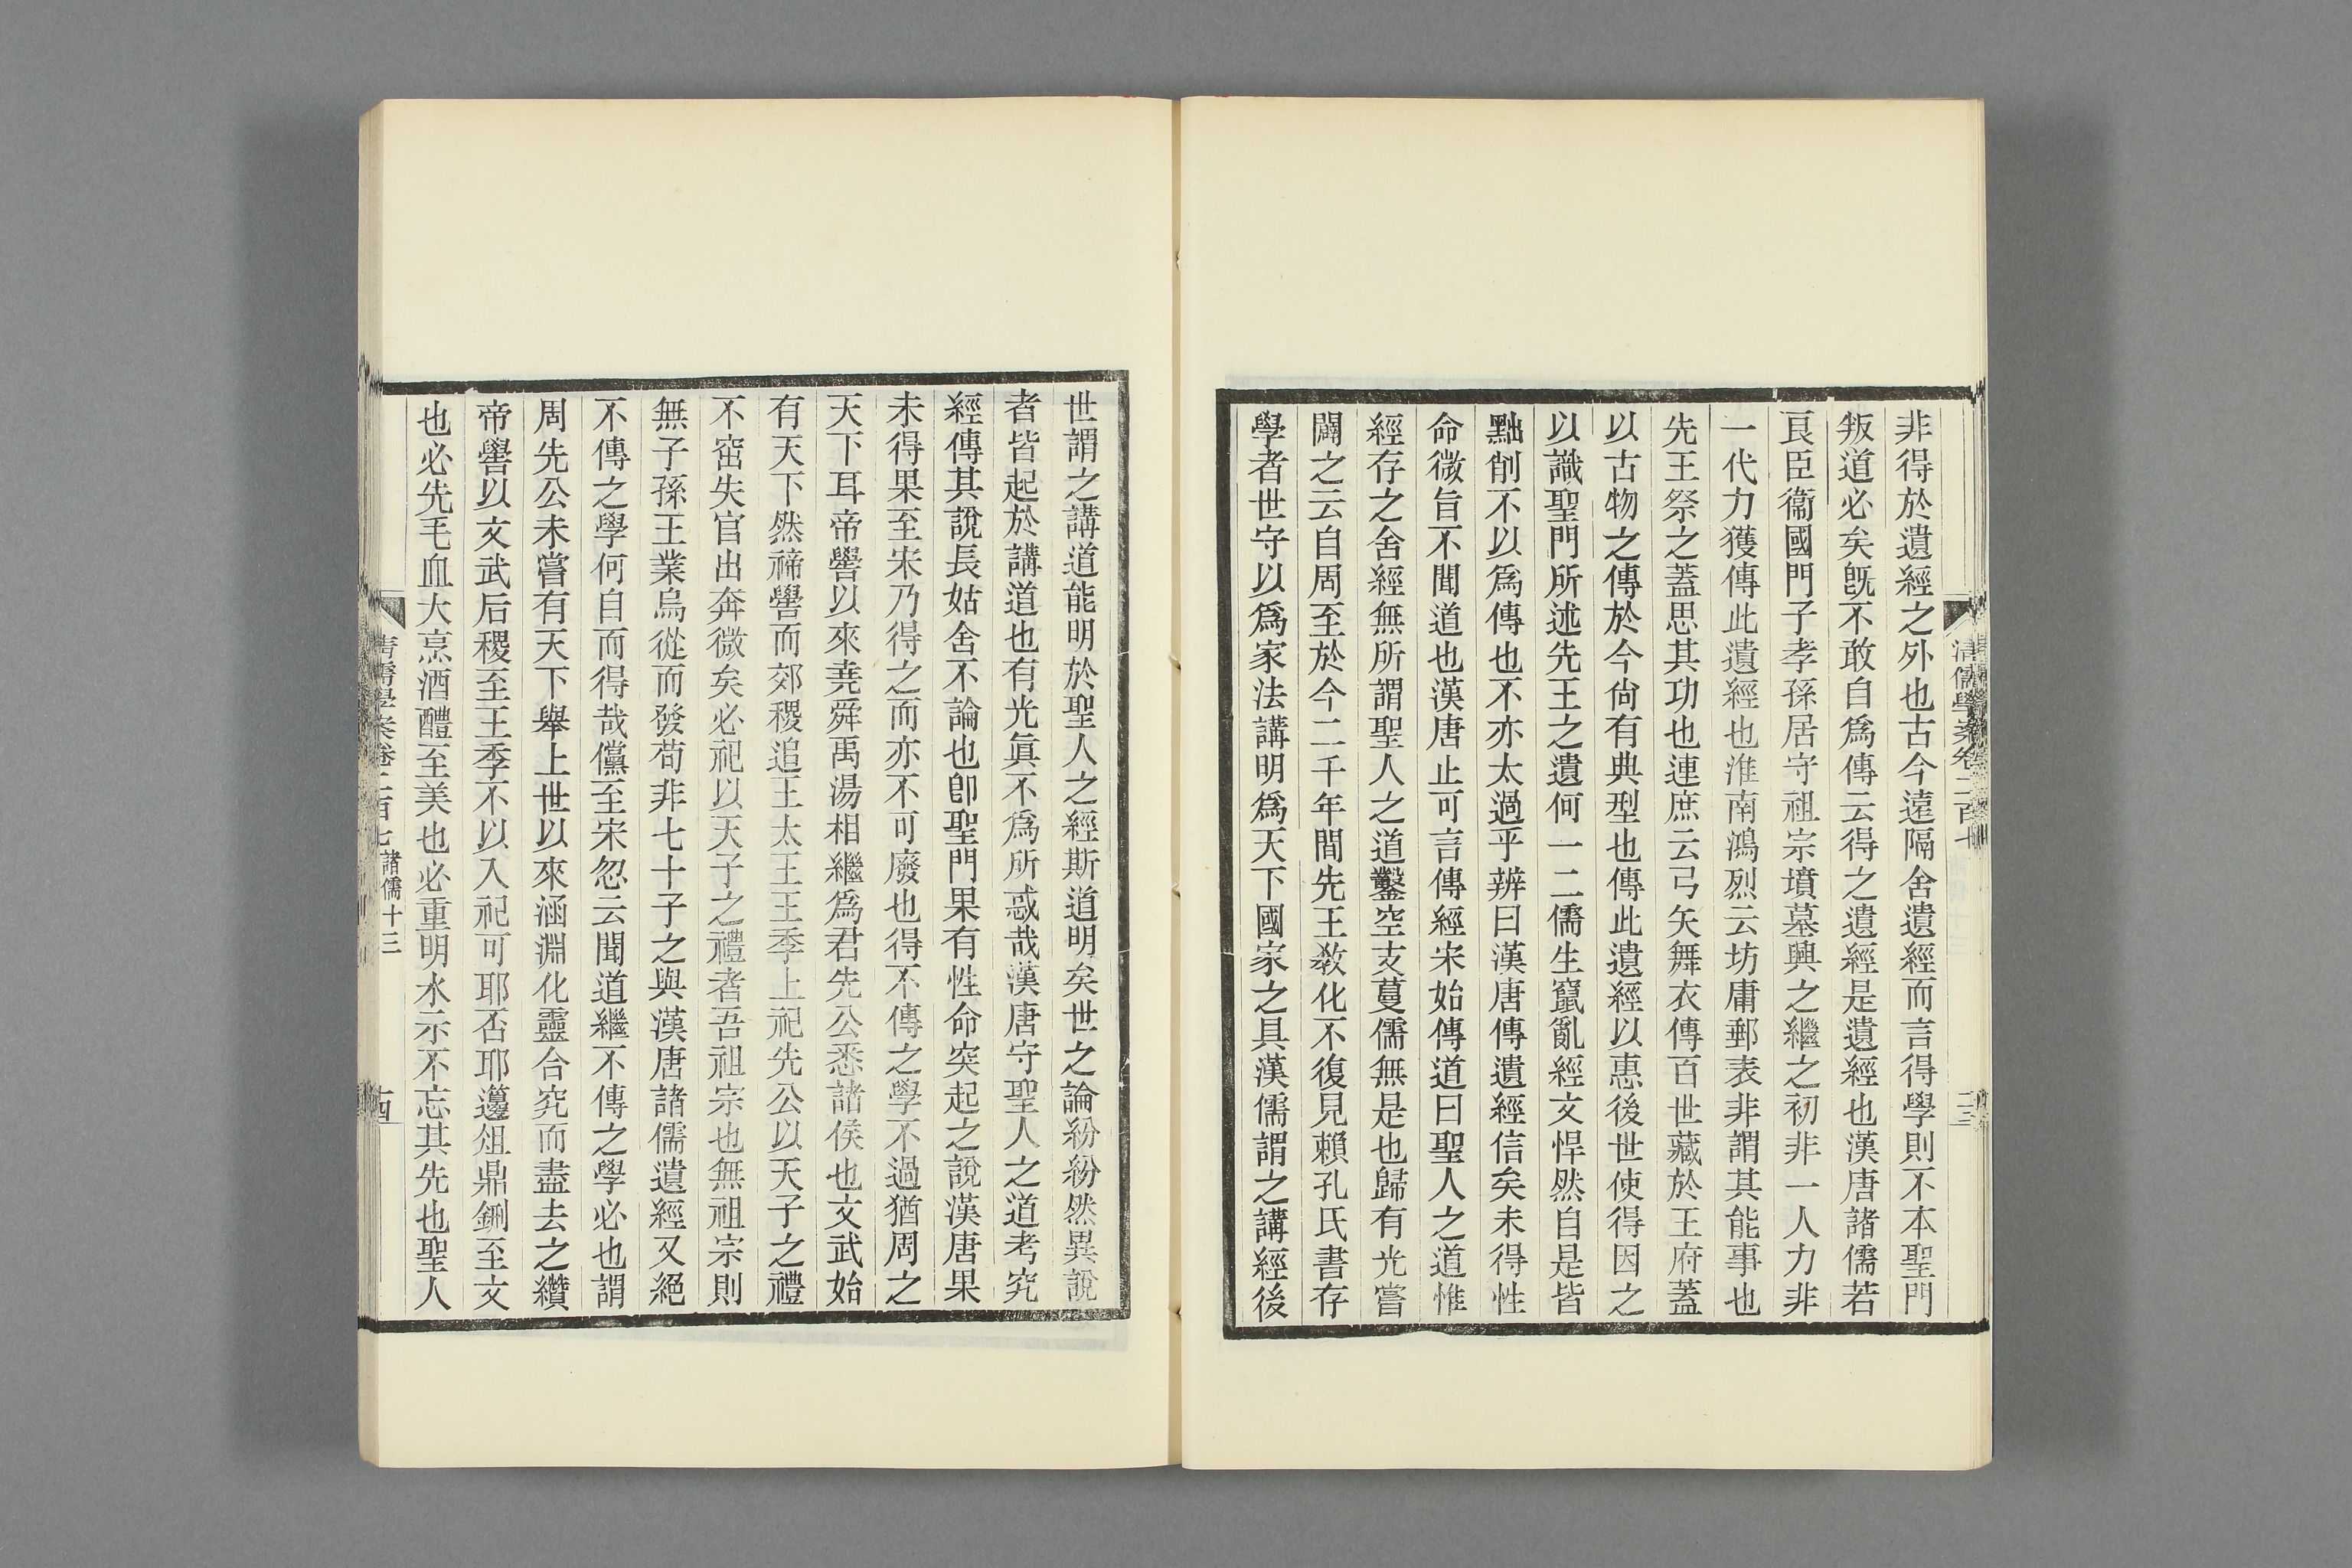 清儒學案卷二百七
非得於遺經之外也古今遠隔舍遺經而言得學則不本聖門
叛道必矣旣不敢自爲傳云得之遺經是遺經也漢唐諸儒若
良臣衞國門子孝孫居守祖宗墳墓興之繼之初非一人力非
一代力獲傳此遺經也淮南鴻烈云坊庸郵表非謂其能事也
先王祭之蓋思其功也連庶云弓矢舞衣傳百世藏於王府蓋
以古物之傳於今尙有典型也傳此遺經以惠後世使得因之
以識聖門所述先王之遺何一二儒生竄亂經文悍然自是皆
黜削不以爲傳也不亦太過乎辨曰漢唐傳遺經信矣未得性
命微旨不聞道也漢唐止可言傳經宋始傳道曰聖人之道惟
經存之舍經無所謂聖人之道鑿空支蔓儒無是也歸有光嘗
闢之云自周至於今二千年間先王敎化不復見賴孔氏書存
學者世守以爲家法講明爲天下國家之具漢儒謂之講經後
世謂之講道能明於聖人之經斯道明矣世之論紛紛然異說
者皆起於講道也有光眞不爲所惑哉漢唐守聖人之道考究
經傳其說長姑舍不論也卽聖門果有性命突起之說漢唐果
未得果至宋乃得之而亦不可廢也得不傳之學不過猶周之
天下耳帝嚳以來堯舜禹湯相繼爲君先公悉諸侯也文武始
有天下然禘嚳而郊稷追王太王王季上祀先公以天子之禮
不窋失官出奔微矣必祀以天子之禮者吾祖宗也無祖宗則
無子孫王業烏從而發苟非七十子之與漢唐諸儒遺經又絕
不傳之學何自而得哉儻至宋忽云聞道繼不傳之學必也謂
周先公未嘗有天下舉上世以來涵淵化靈合究而盡去之纘
帝嚳以文武后稷至王季不以入祀可耶否耶籩俎鼎鉶至文
也必先毛血大烹酒醴至美也必重明水示不忘其先也聖人
清儒學案卷二百七 諸儒十三
十四